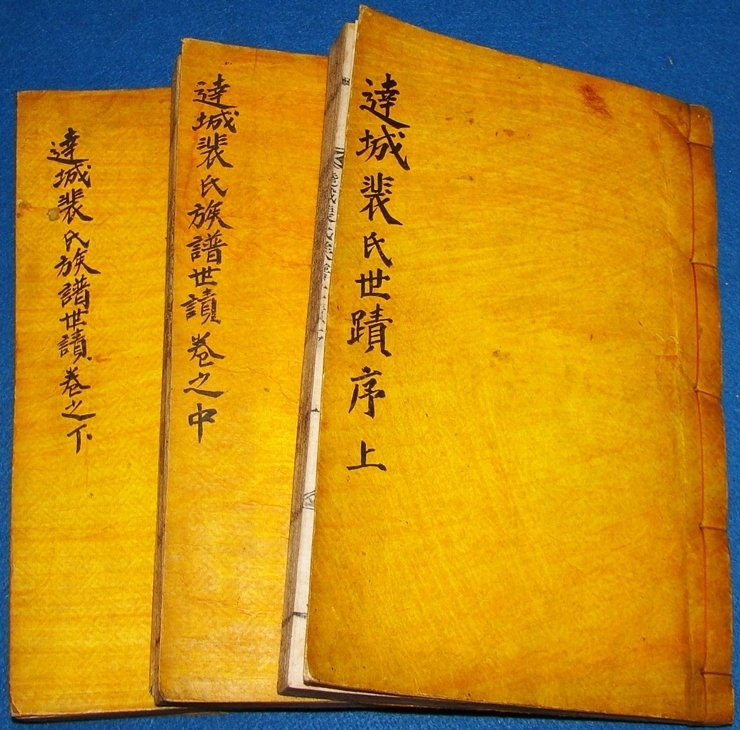 達城裴氏世蹟序上
達城裴氏族譜世謮卷之中
達城裴氏族譜世謮卷之下